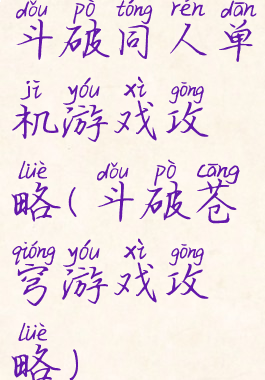 dǒu pò tóng rén dān
斗破同人单
jī yóu xì gōng
机游戏攻
lüè dǒu pò cāng
略(斗破苍
qióng yóu xì gōng
穹游戏攻
lüè
略)